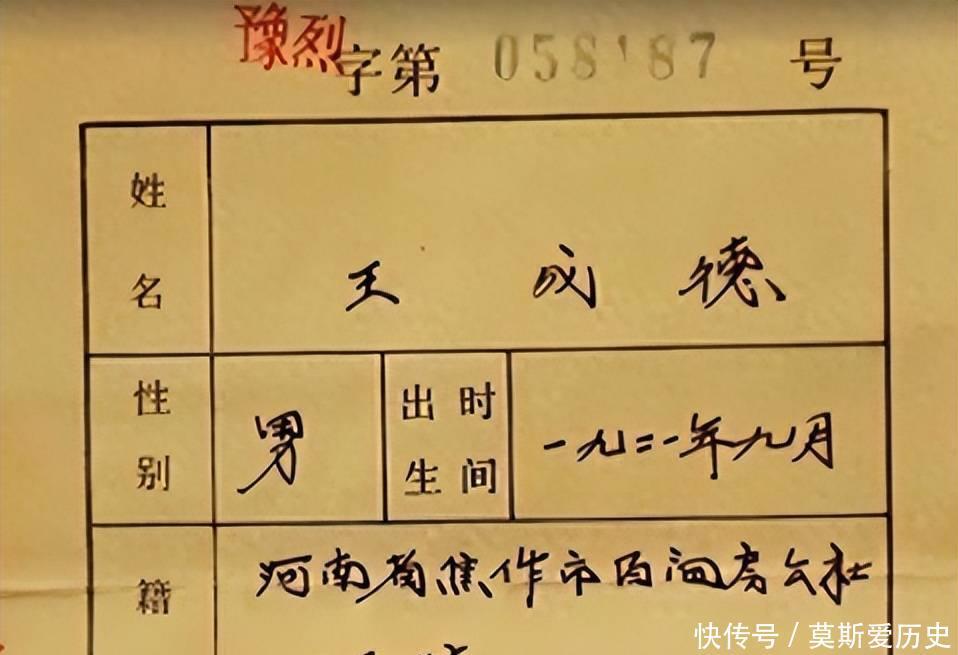 豫烈字第 058187 号
姓名 王成德
性别 男 出生时间 一九二一年九月
籍 河南省焦作市百间房公社
快传号 / 莫斯爱历史